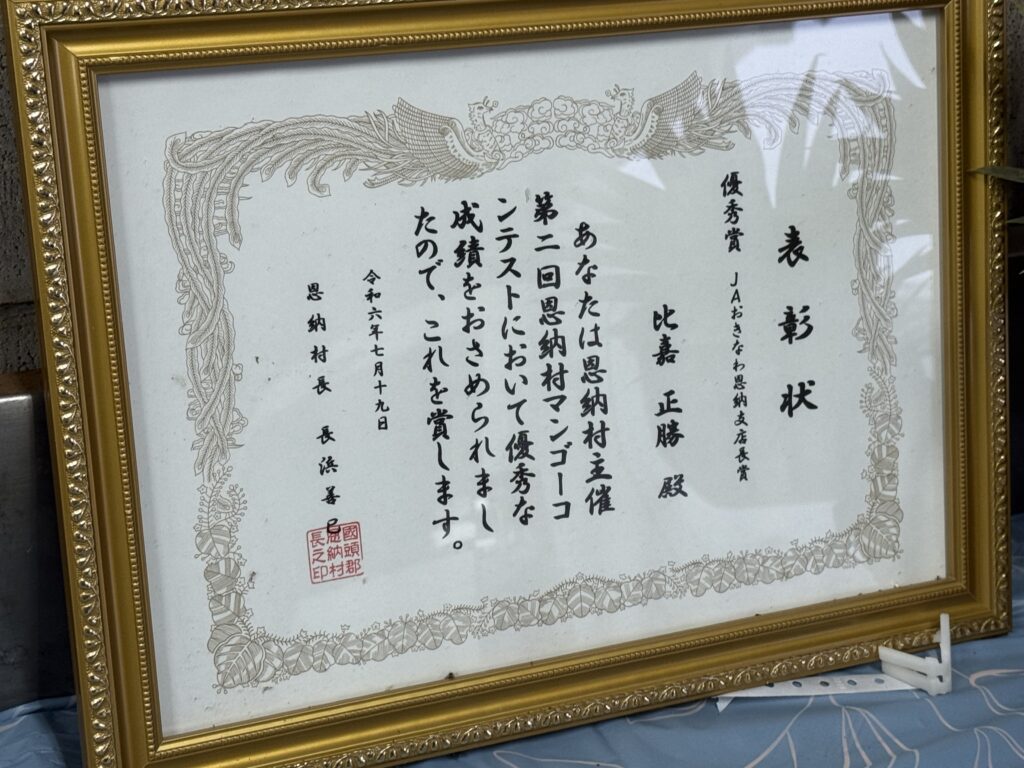 表彰状
優秀賞 JAおきなわ恩納支店長賞
比嘉 正勝 殿
あなたは恩納村主催
第二回恩納村マンゴーコ
ンテストにおいて優秀な
成績をおさめられまし
たので、これを賞します。
令和六年七月十九日
恩納村長 長浜善巳
國頭郡
恩納村
長之印